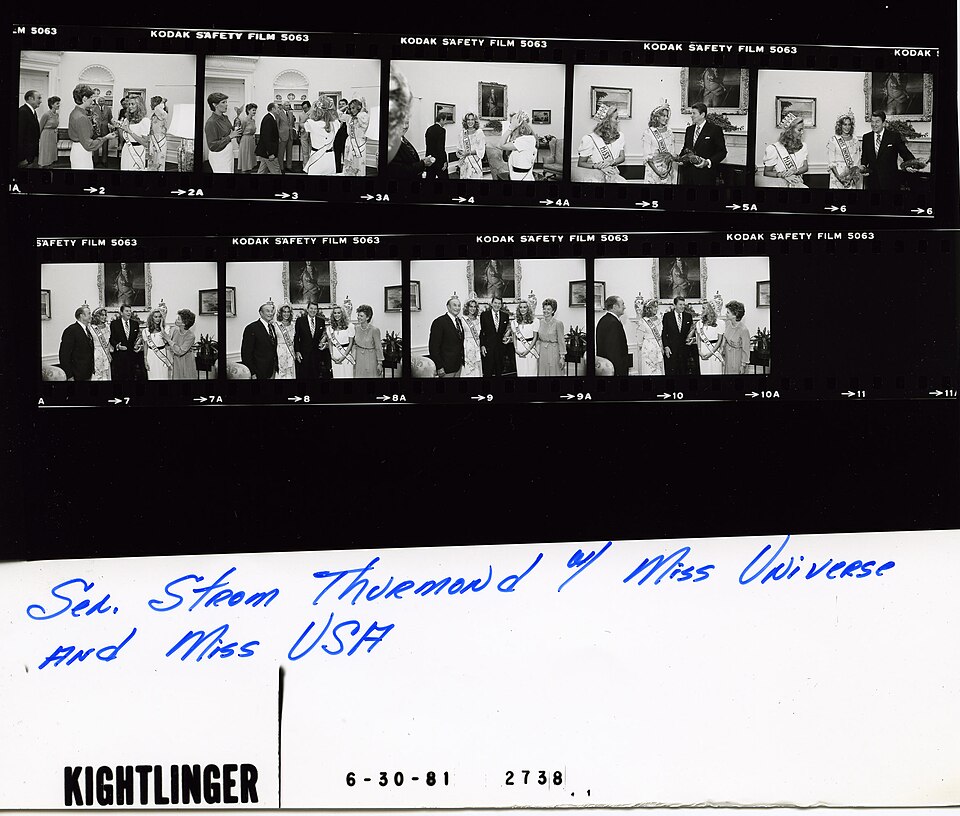 M 5063 KODAK SAFETY FILM 5063 KODAK SAFETY FILM 5063 KODAK SAFETY FILM 5063 KODAK S
→2 →2A →3 →3A →4 →4A →5 →5A →6 →6
SAFETY FILM 5063 KODAK SAFETY FILM 5063 KODAK SAFETY FILM 5063 KODAK SAFETY FILM 5063
A →7 →7A →8 →8A →9 →9A →10 →10A →11 →11
Sen. Strom Thurmond w/ Miss Universe
and Miss USA
KIGHTLINGER 6-30-81 2738